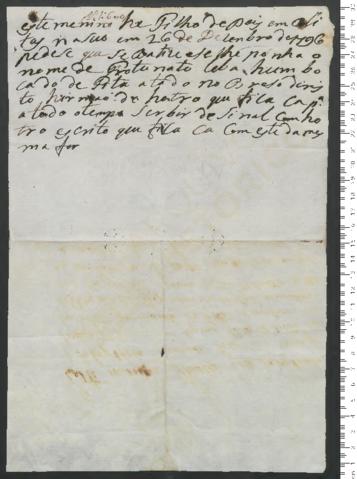 este menino he Filho de Pais em Oli
tas nasceo em 26 de Dezenbro de 1796
pede c que se Batize e se lhe ponha o
nome de Frotunato leba hum bo
cado de Fita atado no Braso direi
to hirmao de hotro que fica ca p
a todo otempo serbir de sinal com ho
tro escrito que fica ca com este da mes
ma for